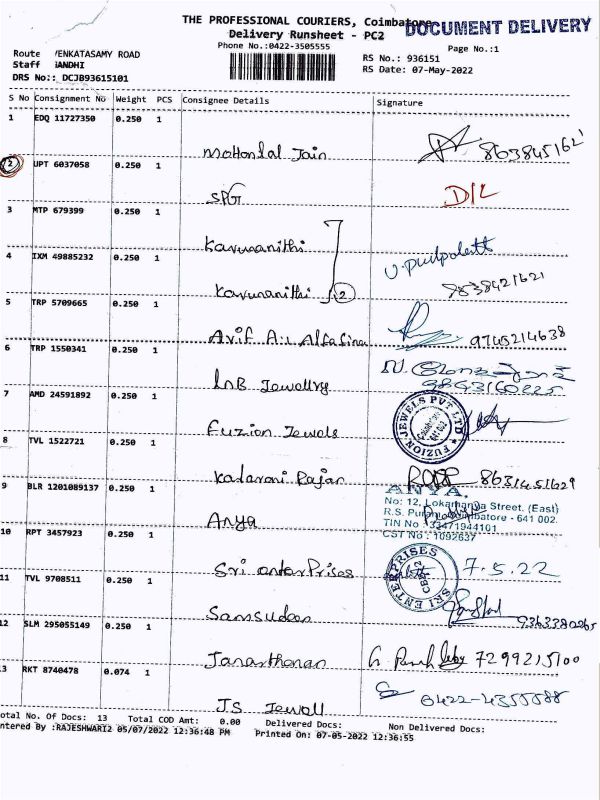 THE PROFESSIONAL COURIERS, Coimbatore
DOCUMENT DELIVERY
Delivery Runsheet - PC2
Phone No.:0422-3505555
Page No.:1
Route VENKATASAMY ROAD
RS No.: 936151
Staff GANDHI
RS Date: 07-May-2022
DRS No:: DCJB93615101
S No Consignment No Weight PCS Consignee Details Signature
1 EDQ 11727350 0.250 1
Mohonlal Jain 8638451621
2 UPT 6037058 0.250 1
SPG D/L
3 MTP 679399 0.250 1
Karunanithi
4 IXM 49885232 0.250 1
Karunanithi 2 9838421621
5 TRP 5709665 0.250 1
Arif A:L 9745214638
6 TRP 1550341 0.250 1
LnB Jewellry 9843160225
7 AMD 24591892 0.250 1
Fuzion Jewels FUZION JEWELS PVT LTD
8 TVL 1522721 0.250 1
Rajan 8631451629
9 BLR 1201089137 0.250 1
ANYA.
No: 12, Lokamanya Street, (East)
R.S. Puram, Coimbatore - 641 002.
Anya TIN No : 33471944101
CST No : 1092637
10 RPT 3457923 0.250 1
Sri enterPrises SRI ENTERPRISES 7.5.22
11 TVL 9708511 0.250 1
Samsudeen 9363380265
12 SLM 295055149 0.250 1
Janarthanan 7299215100
13 RKT 8740478 0.074 1
JS Jewell 0422-4355588
Total No. Of Docs: 13 Total COD Amt: 0.00 Delivered Docs: Non Delivered Docs:
Entered By :RAJESHWARI2 05/07/2022 12:36:48 PM Printed On: 07-05-2022 12:36:55